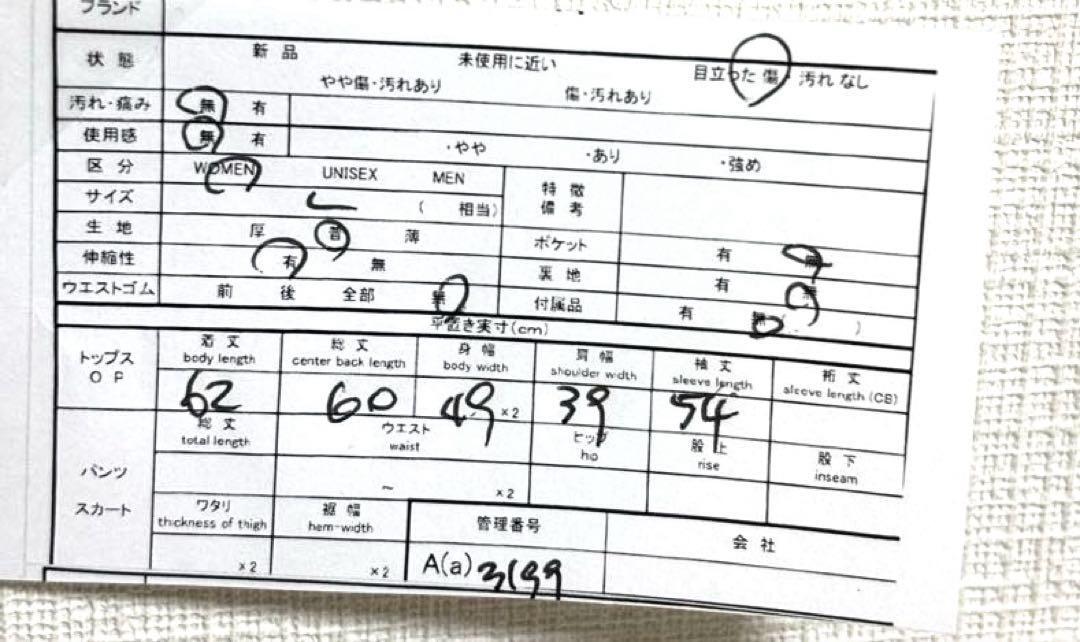 ブランド
状態 新品 未使用に近い 目立った傷・汚れなし
やや傷・汚れあり 傷・汚れあり
汚れ・痛み 無 有
使用感 無 有 ・やや ・あり ・強め
区分 WOMEN UNISEX MEN
特徴
備考
サイズ L ( 相当)
生地 厚 普 薄
ポケット 有 無
伸縮性 有 無
裏地 有 無
ウエストゴム 前 後 全部 無
付属品 有 無( )
平置き実寸(cm)
トップス
OP
着丈 総丈 身幅 肩幅 袖丈 裄丈
body length center back length body width shoulder width sleeve length sleeve length (CB)
62 60 49 ×2 39 54
パンツ
スカート
総丈 ウエスト ヒップ 股上 股下
total length waist hip rise inseam
~ ×2
ワタリ 裾幅 管理番号 会社
thickness of thigh hem-width
×2 ×2 A(a) 3199